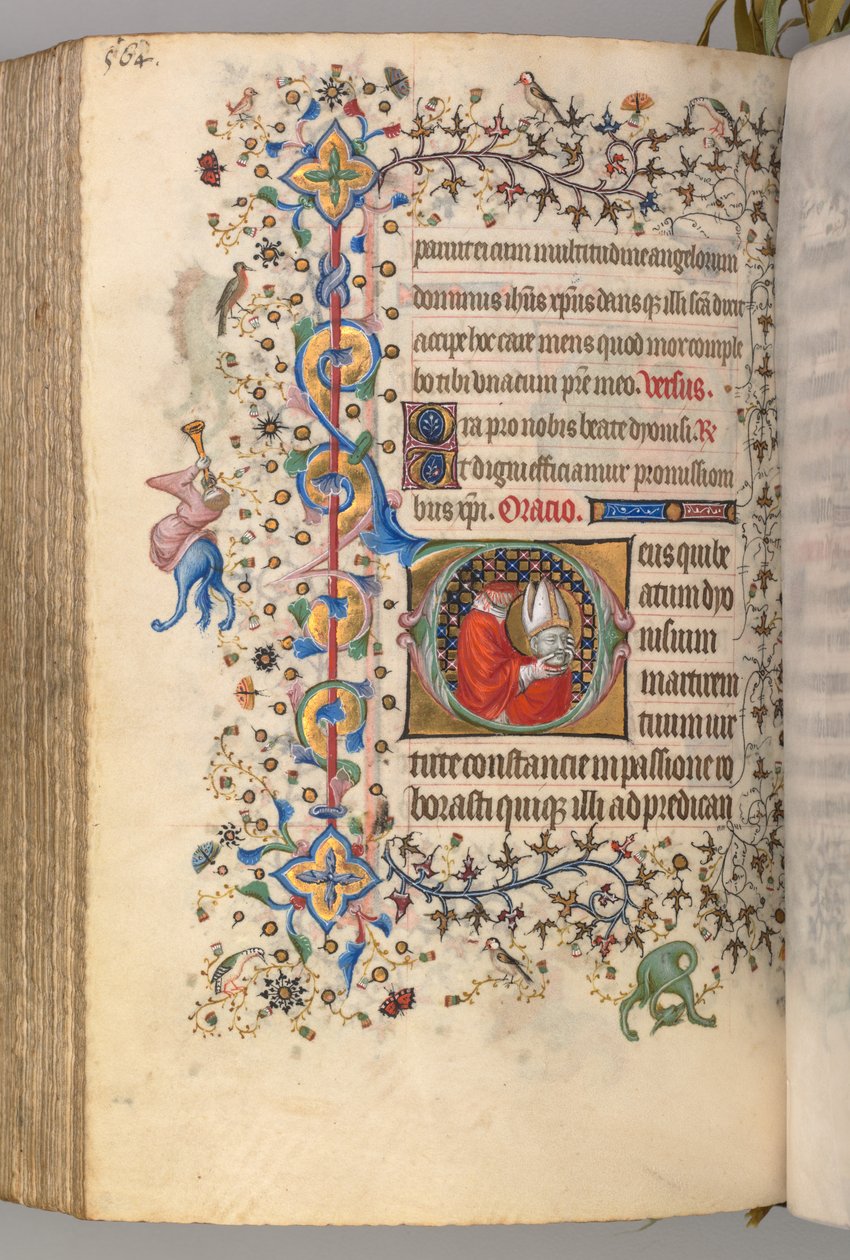 564.
paruit ei cum multitudine angelorum
dominus ihūs xp̄us dans qꝫ illi scā dixit
accipe hoc care meus quod mox comple
bo tibi vna cum pr̄e meo. Versus.
Ora pro nobis beate dyonisi. R̷
Et digni efficiamur promission
bus xp̄i. Oracio.
Deus qui be
atum dyo
nisium
martirem
tuum uir
tute constancie in passione ro
borasti quiqꝫ illi ad predican